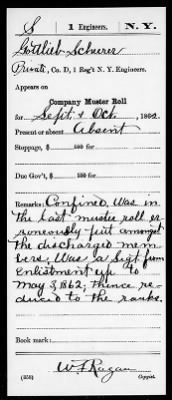 S 1 Engineers. N.Y.
Gottlieb Scherer
Private, Co. D, 1 Reg't N. Y. Engineers.
Appears on
Company Muster Roll
for Sept & Oct, 1862
Present or absent Absent
Stoppage, $ 100 for
Due Gov't, $ 100 for
Remarks: Confined, Was in
the last muster roll er-
roneously put amongst
the discharged mem-
bers, Was a Sgt from
Enlistment up to
May 3, 1862, thence re-
duced to the ranks.
Book mark:
(358) Copyist.